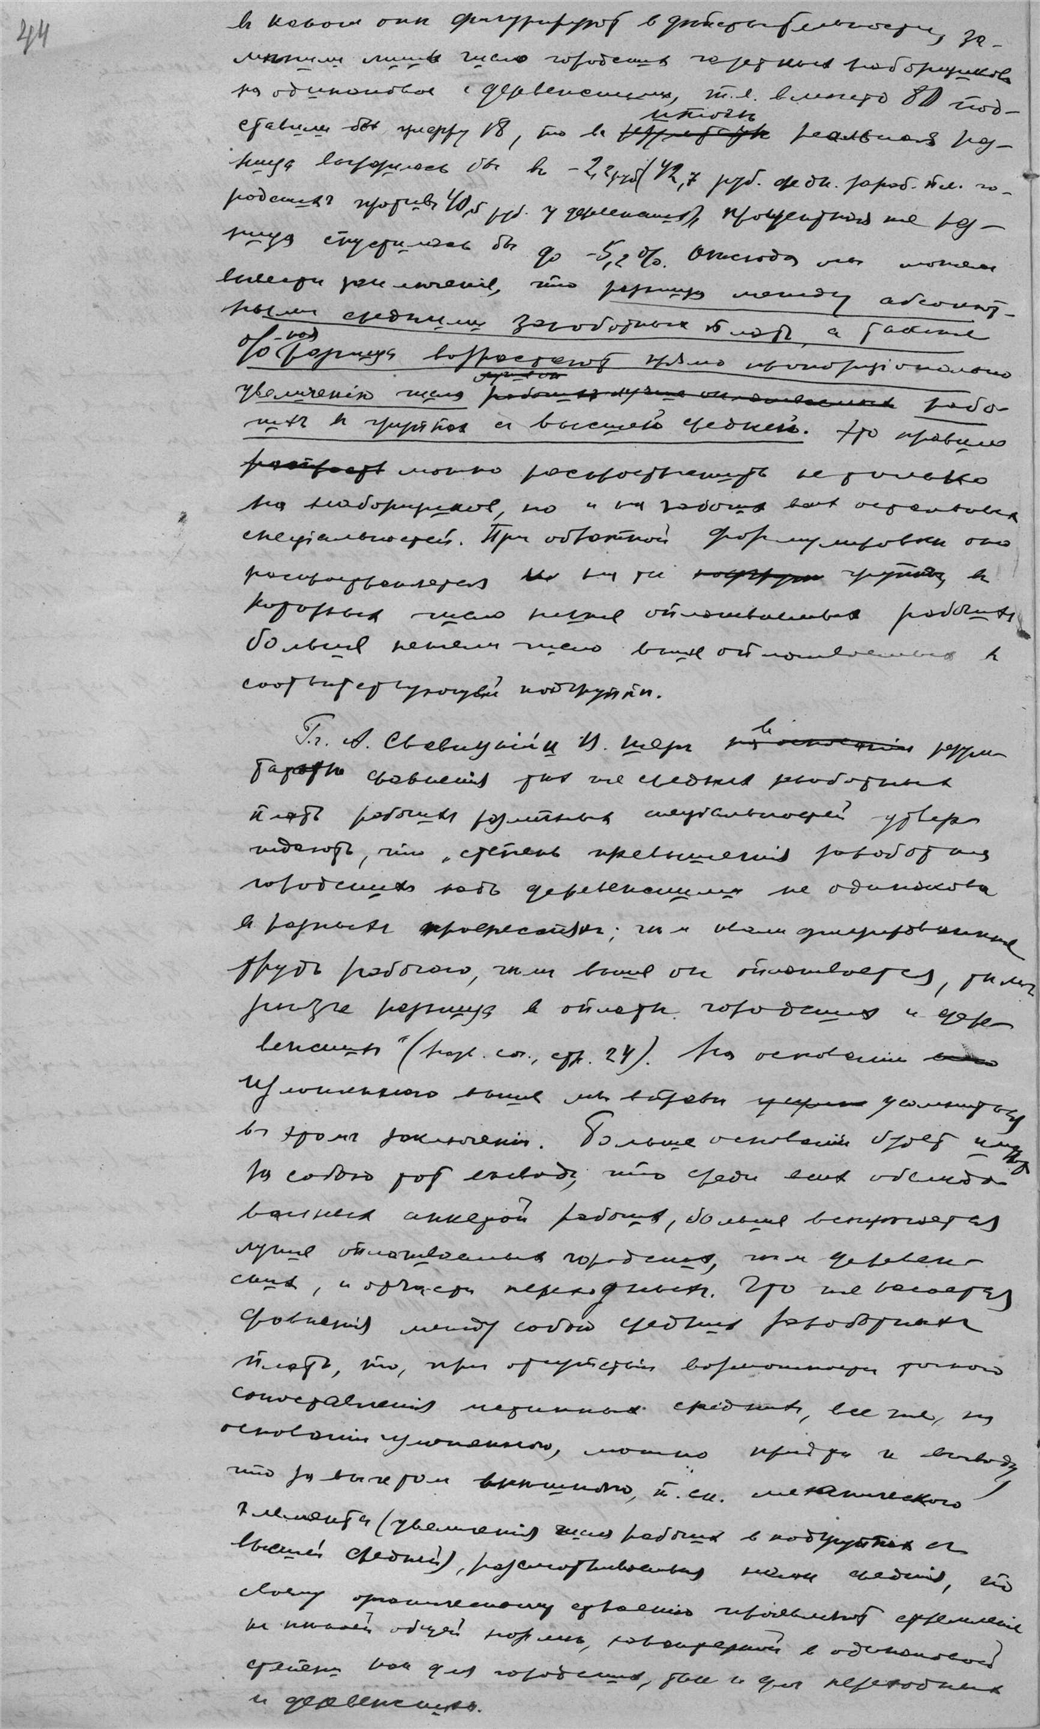 44
в каком они фигурируют в действительности, за-
менили лишь число городских газетных наборщиков
на одинаковое с деревенскими, т.е. вместо 80 под-
ставили бы цифру 18, то в итоге реальная раз-
ница выразилась бы в -2,2 руб. (42,7 руб. средн. зараб. пл. го-
родских против 40,5 руб. у деревенских), процентная же раз-
ница спустилась бы до -5,2%. Отсюда мы можем
вывести заключение, что разница между абсолют-
ными средними заработных плат, а также
%-ная разница возрастают прямо пропорционально
увеличению числа рабо-
чих в группах с высшей средней. Это правило
можно распространить не только
на наборщиков, но и на рабочих всех остальных
специальностей. При обратной формулировке оно
распространяется на те группы, в
которых число ниже оплачиваемых рабочих
больше нежели число выше оплачиваемых в
соответствующей подгруппе.
Гг. А. Свавицкий и В. Шер в резуль-
тате сравнения тех же средних заработных
плат рабочих различных специальностей утвер-
ждают, что „степень превышения заработка
городских над деревенскими не одинакова
в разных профессиях; чем квалифицированнее
труд рабочего, чем выше он оплачивается, тем
резче разница в оплате городских и дере-
венских" (назв. соч., стр. 24). На основании
изложенного выше мы вправе усомниться
в этом заключении. Больше оснований будет иметь
за собою тот вывод, что среди всех обследо-
ванных анкетой рабочих, больше встречается
лучше оплачиваемых городских, чем деревен-
ских, и отчасти переходных. Что же касается
сравнения между собою средних заработных
плат, то, при отсутствии возможности точного
сопоставления истинных средних, все же, на
основании изложенного, можно придти к выводу,
что за вычетом внешнего, т.ск. механического
элемента (увеличения числа рабочих в подгруппах с
высшей средней), рассматриваемые нами средние, по
своему органическому строению проявляют стремление
к некоей общей норме, характерной в одинаковой
степени как для городских, так и для переходных
и деревенских.